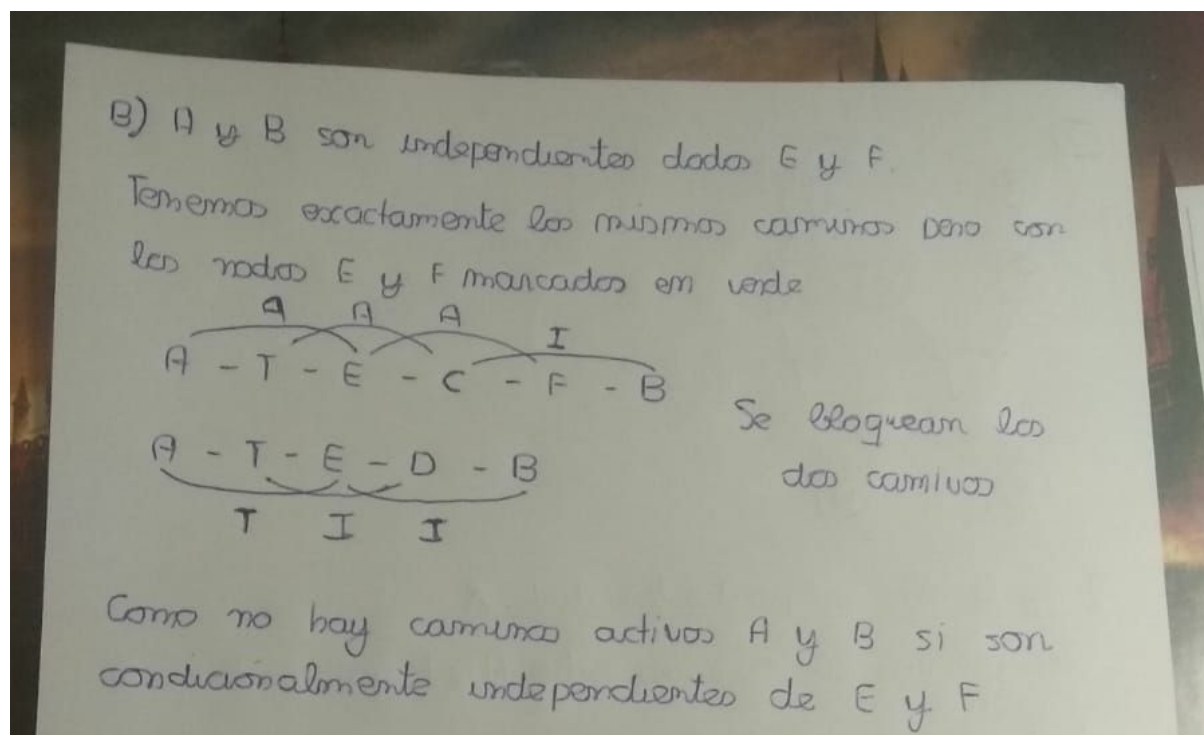 B) A y B son independientes dados E y F.
Tenemos exactamente los mismos caminos pero con
los nodos E y F marcados en verde
A A A I
A - T - E - C - F - B
Se bloquean los
dos caminos
A - T - E - D - B
T I I
Como no hay caminos activos A y B si son
condicionalmente independientes de E y F